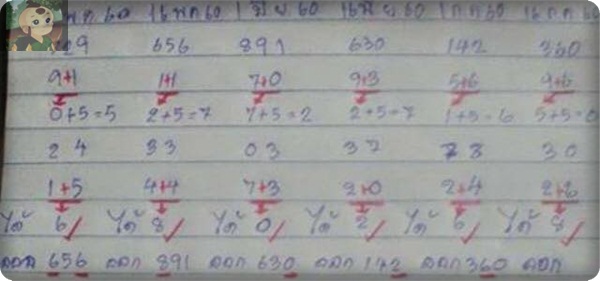 พ.ค 60 16 พ.ค 60 1 มิ.ย 60 16 มิ.ย 60 1 ก.ค 60 16 ก.ค 60
656 891 630 142 360
9+1 1+1 7+0 9+3 5+6 9+6
0+5=5 2+5=7 7+5=2 2+5=7 1+5=6 5+5=0
24 33 03 32 78 30
1+5 4+4 7+3 2+0 2+4 2+6
ได้ 6 ได้ 8 ได้ 0 ได้ 2 ได้ 6 ได้ 8
ออก 656 ออก 891 ออก 630 ออก 142 ออก 360 ออก